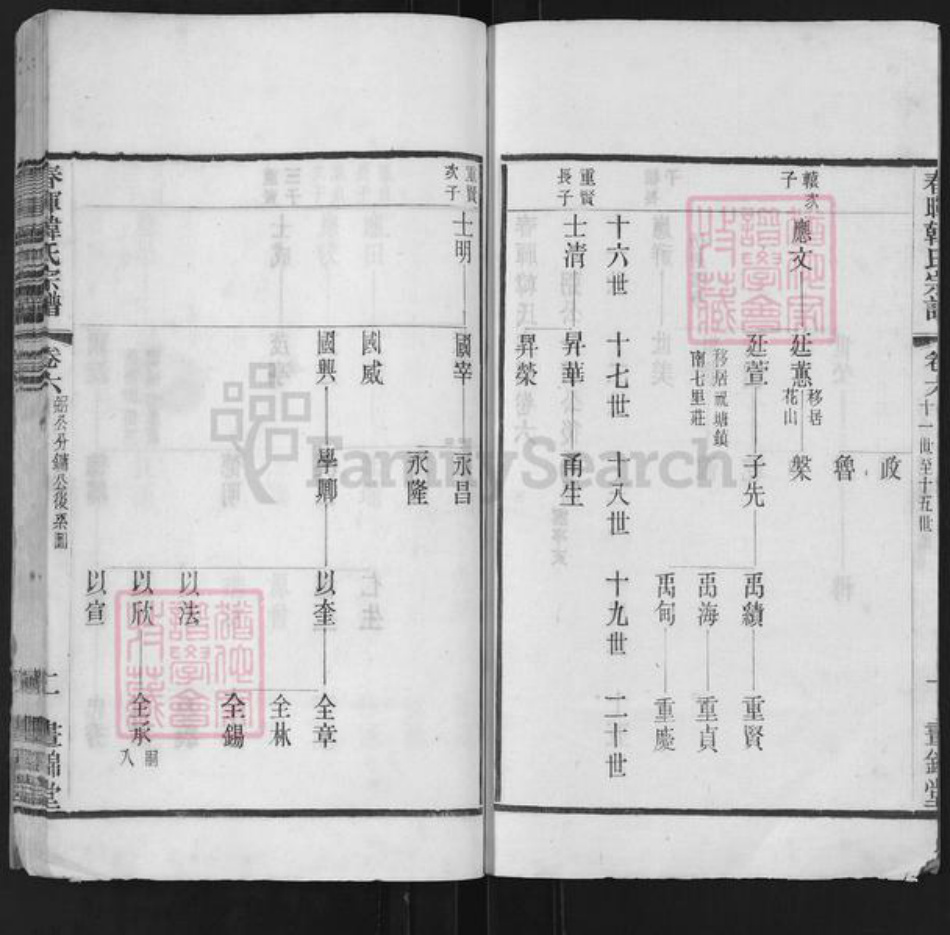 春暉韓氏宗譜
卷六
十一世至十五世
晝錦堂
政
魯
轅次子
應文
廷蕙
移居花山
槃
廷萱
移居瓬塘鎮南七里莊
子先
禹績
重賢
禹海
重貞
禹甸
重慶
十六世
十七世
十八世
十九世
二十世
重賢長子
士清
昇華
甬生
昇榮
重賢次子
士明
國宰
永昌
永隆
國威
國興
學卿
以奎
全章
全林
全錫
以法
以欣
全承
嗣入
以宣
春暉韓氏宗譜
卷六
公分鏞公後系圖
二
晝錦堂
猶他家譜學會收藏
猶他家譜學會收藏
FamilySearch